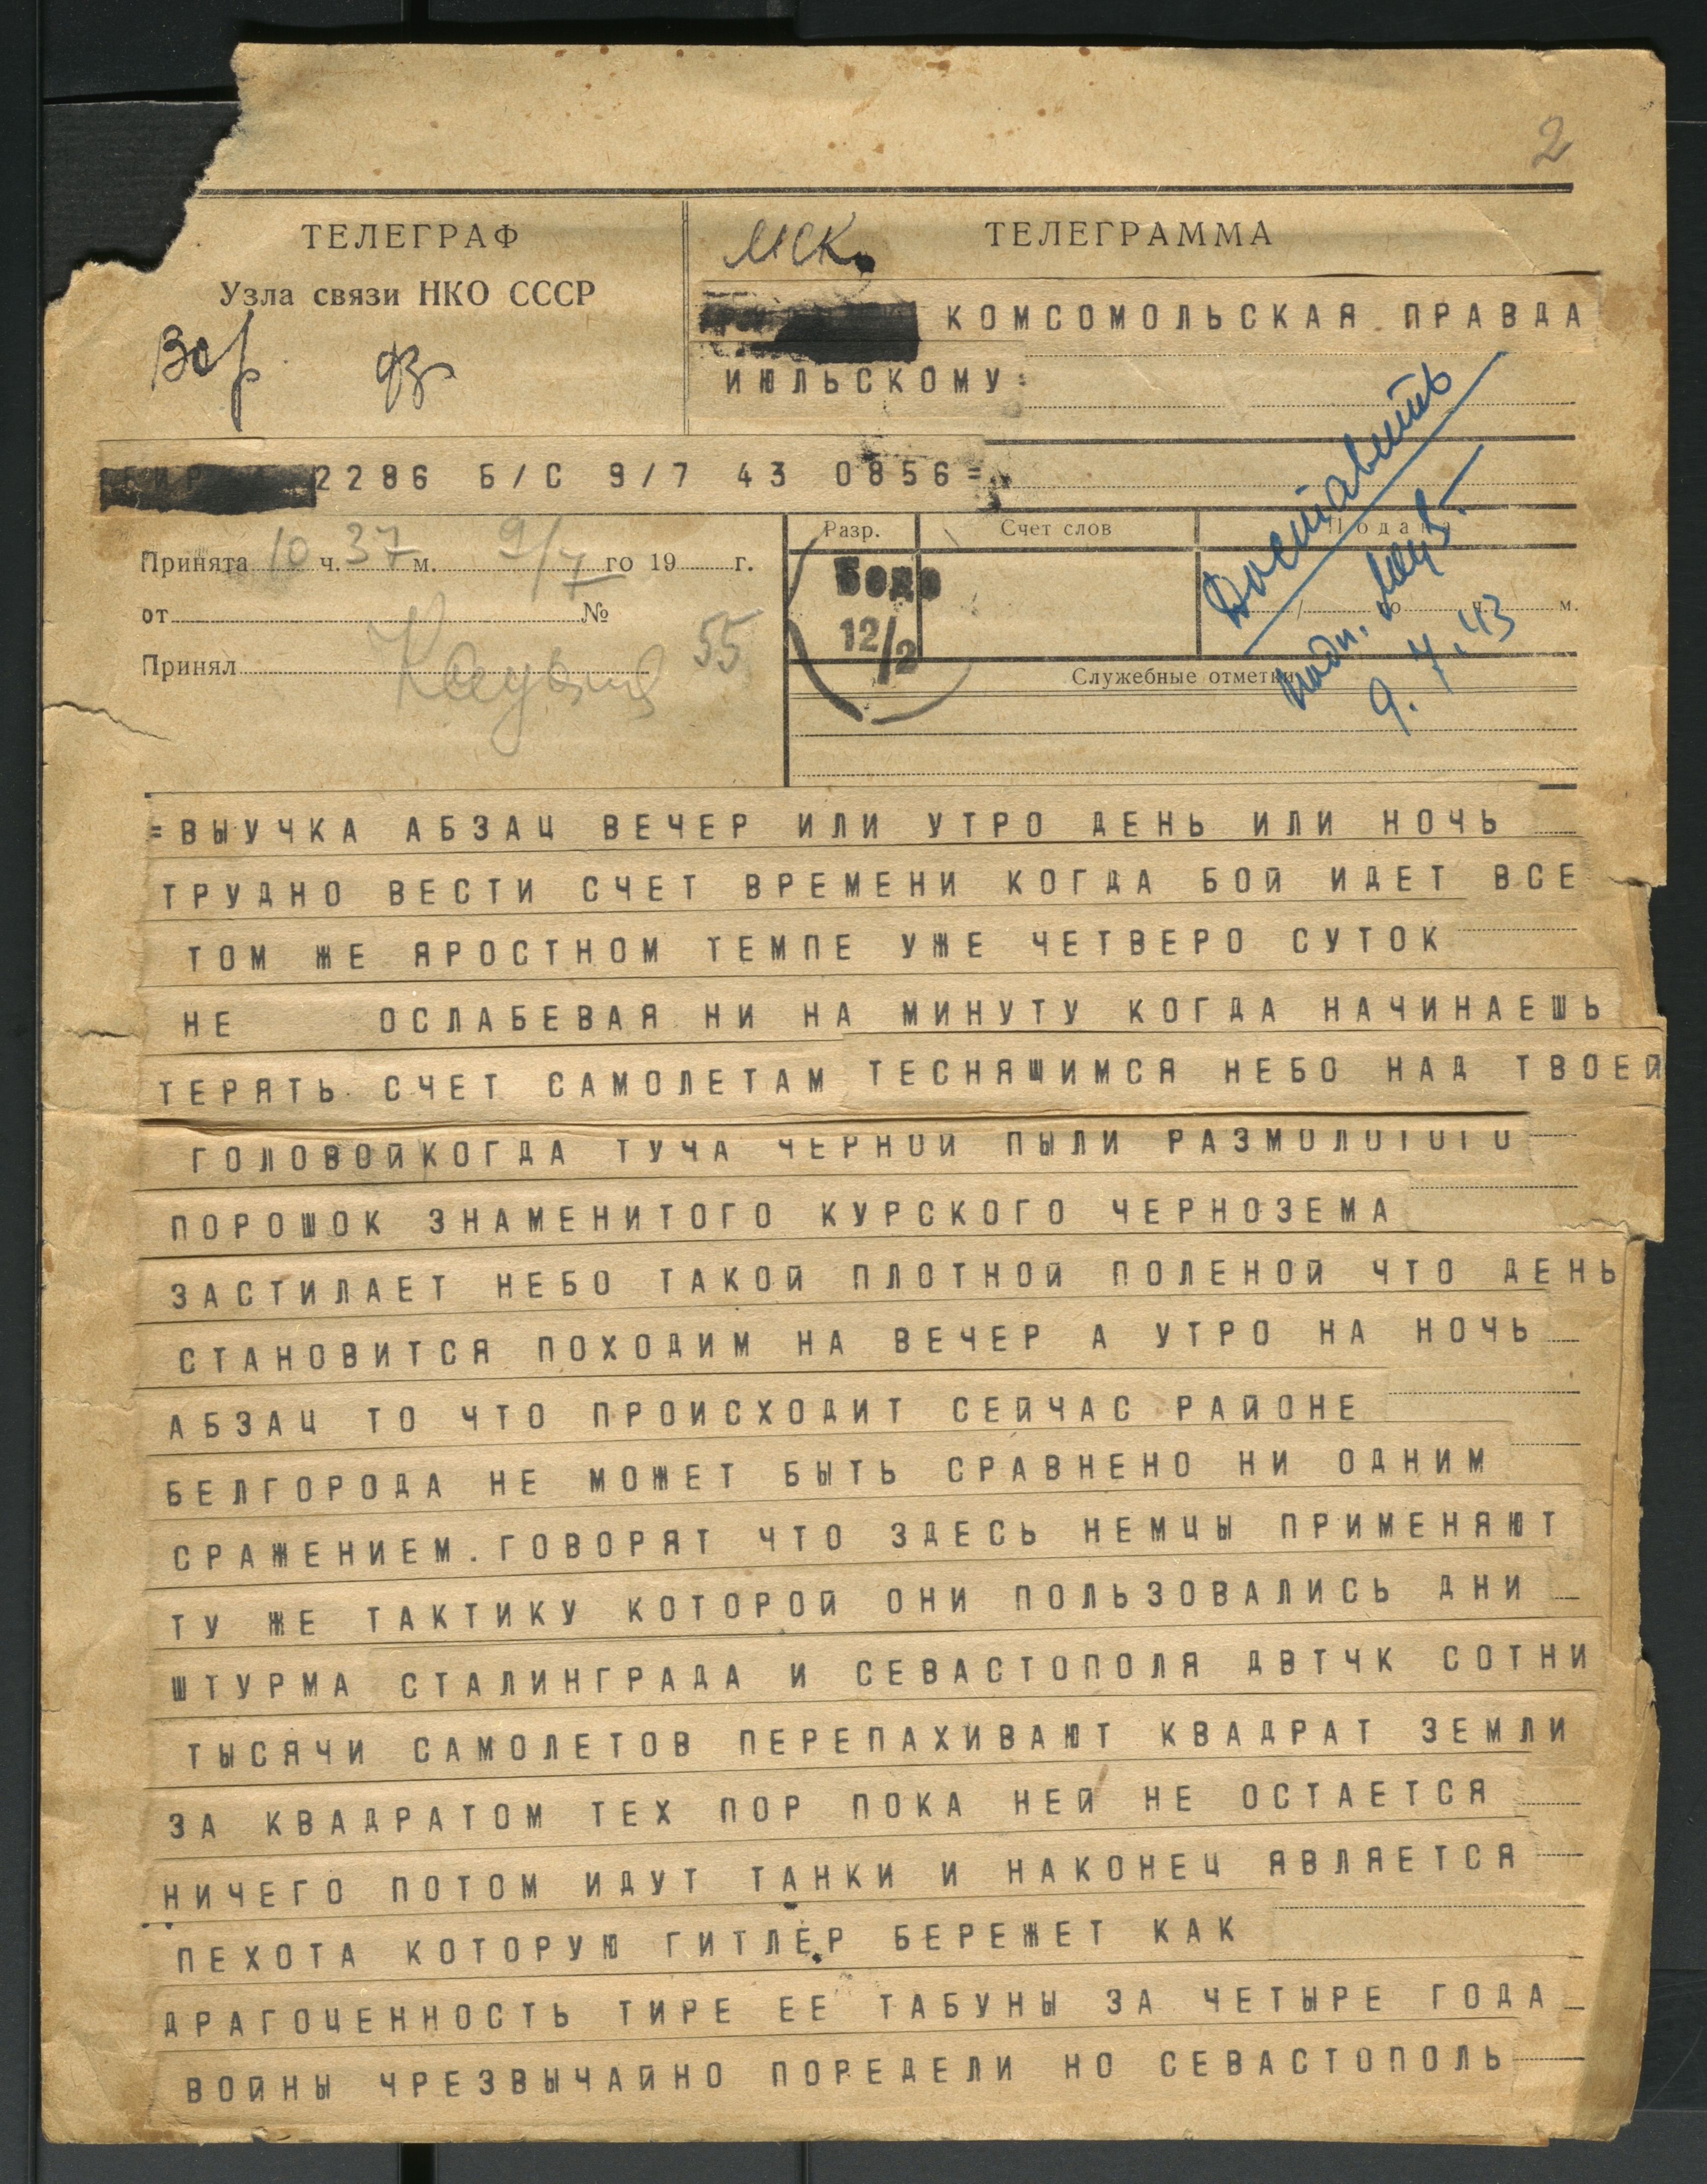 2
ТЕЛЕГРАФ
Узла связи НКО СССР
мск.
ТЕЛЕГРАММА
КОМСОМОЛЬСКАЯ ПРАВДА
ИЮЛЬСКОМУ=
2286 Б/С 9/7 43 0856=
Принята 10 ч. 37 м. 9/7 го 19 г.
от №
Принял 55
Разр.
Счет слов
Подана
Бодо
12/2
го ч. м.
Служебные отметки
Доставить
подп.
9.7.43
=ВЫУЧКА АБЗАЦ ВЕЧЕР ИЛИ УТРО ДЕНЬ ИЛИ НОЧЬ
ТРУДНО ВЕСТИ СЧЕТ ВРЕМЕНИ КОГДА БОЙ ИДЕТ ВСЕ
ТОМ ЖЕ ЯРОСТНОМ ТЕМПЕ УЖЕ ЧЕТВЕРО СУТОК
НЕ ОСЛАБЕВАЯ НИ НА МИНУТУ КОГДА НАЧИНАЕШЬ
ТЕРЯТЬ СЧЕТ САМОЛЕТАМ ТЕСНЯЩИМСЯ НЕБО НАД ТВОЕЙ
ГОЛОВОЙКОГДА ТУЧА ЧЕРНОЙ ПЫЛИ РАЗМОЛОТОГО
ПОРОШОК ЗНАМЕНИТОГО КУРСКОГО ЧЕРНОЗЕМА
ЗАСТИЛАЕТ НЕБО ТАКОЙ ПЛОТНОЙ ПОЛЕНОЙ ЧТО ДЕНЬ
СТАНОВИТСЯ ПОХОДИМ НА ВЕЧЕР А УТРО НА НОЧЬ
АБЗАЦ ТО ЧТО ПРОИСХОДИТ СЕЙЧАС РАЙОНЕ
БЕЛГОРОДА НЕ МОЖЕТ БЫТЬ СРАВНЕНО НИ ОДНИМ
СРАЖЕНИЕМ.ГОВОРЯТ ЧТО ЗДЕСЬ НЕМЦЫ ПРИМЕНЯЮТ
ТУ ЖЕ ТАКТИКУ КОТОРОЙ ОНИ ПОЛЬЗОВАЛИСЬ ДНИ
ШТУРМА СТАЛИНГРАДА И СЕВАСТОПОЛЯ ДВТЧК СОТНИ
ТЫСЯЧИ САМОЛЕТОВ ПЕРЕПАХИВАЮТ КВАДРАТ ЗЕМЛИ
ЗА КВАДРАТОМ ТЕХ ПОР ПОКА НЕЙ НЕ ОСТАЕТСЯ
НИЧЕГО ПОТОМ ИДУТ ТАНКИ И НАКОНЕЦ ЯВЛЯЕТСЯ
ПЕХОТА КОТОРУЮ ГИТЛЕР БЕРЕЖЕТ КАК
ДРАГОЦЕННОСТЬ ТИРЕ ЕЕ ТАБУНЫ ЗА ЧЕТЫРЕ ГОДА
ВОЙНЫ ЧРЕЗВЫЧАЙНО ПОРЕДЕЛИ НО СЕВАСТОПОЛЬ